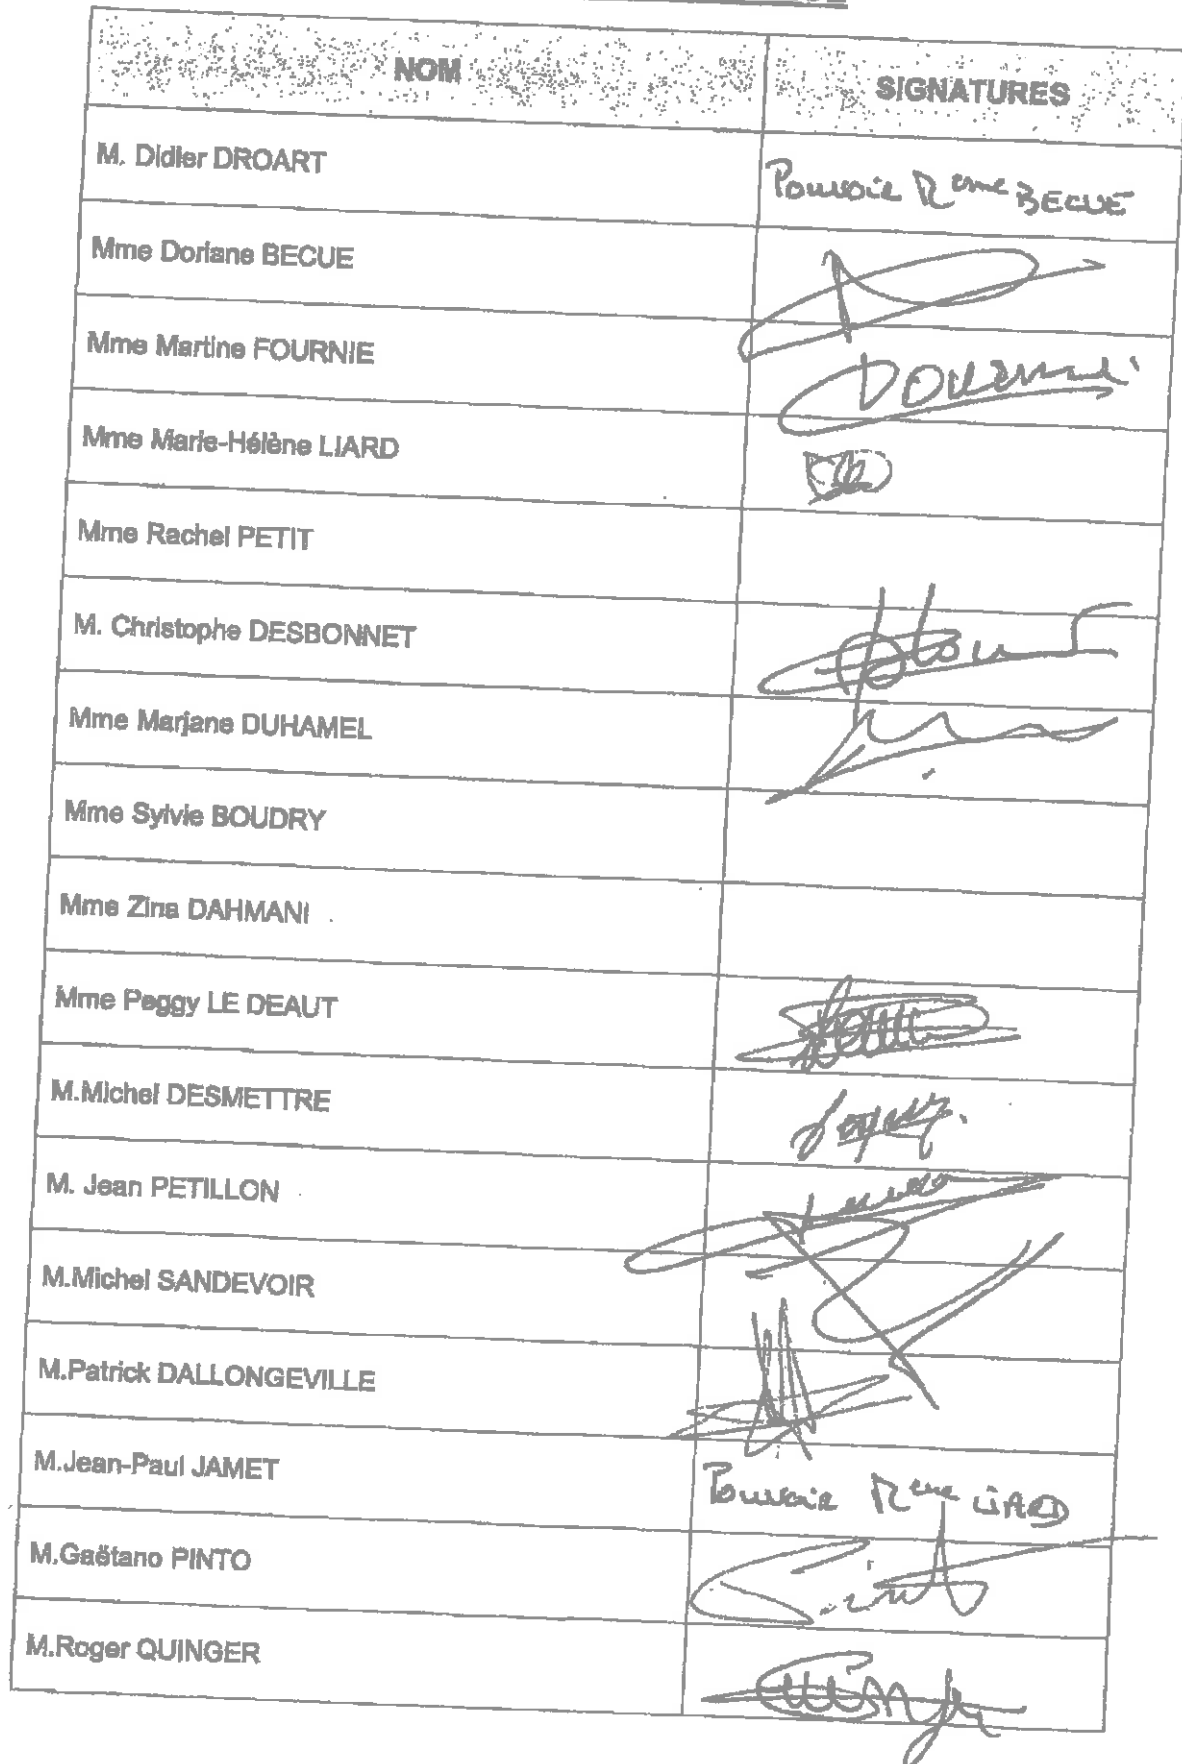 NOM SIGNATURES
M. Didier DROART Pouvoir Mme BECUE
Mme Doriane BECUE
Mme Martine FOURNIE
Mme Marie-Hélène LIARD
Mme Rachel PETIT
M. Christophe DESBONNET
Mme Marjane DUHAMEL
Mme Sylvie BOUDRY
Mme Zina DAHMANI
Mme Peggy LE DEAUT
M.Michel DESMETTRE
M. Jean PETILLON
M.Michel SANDEVOIR
M.Patrick DALLONGEVILLE
M.Jean-Paul JAMET Pouvoir Mme LIARD
M.Gaëtano PINTO
M.Roger QUINGER